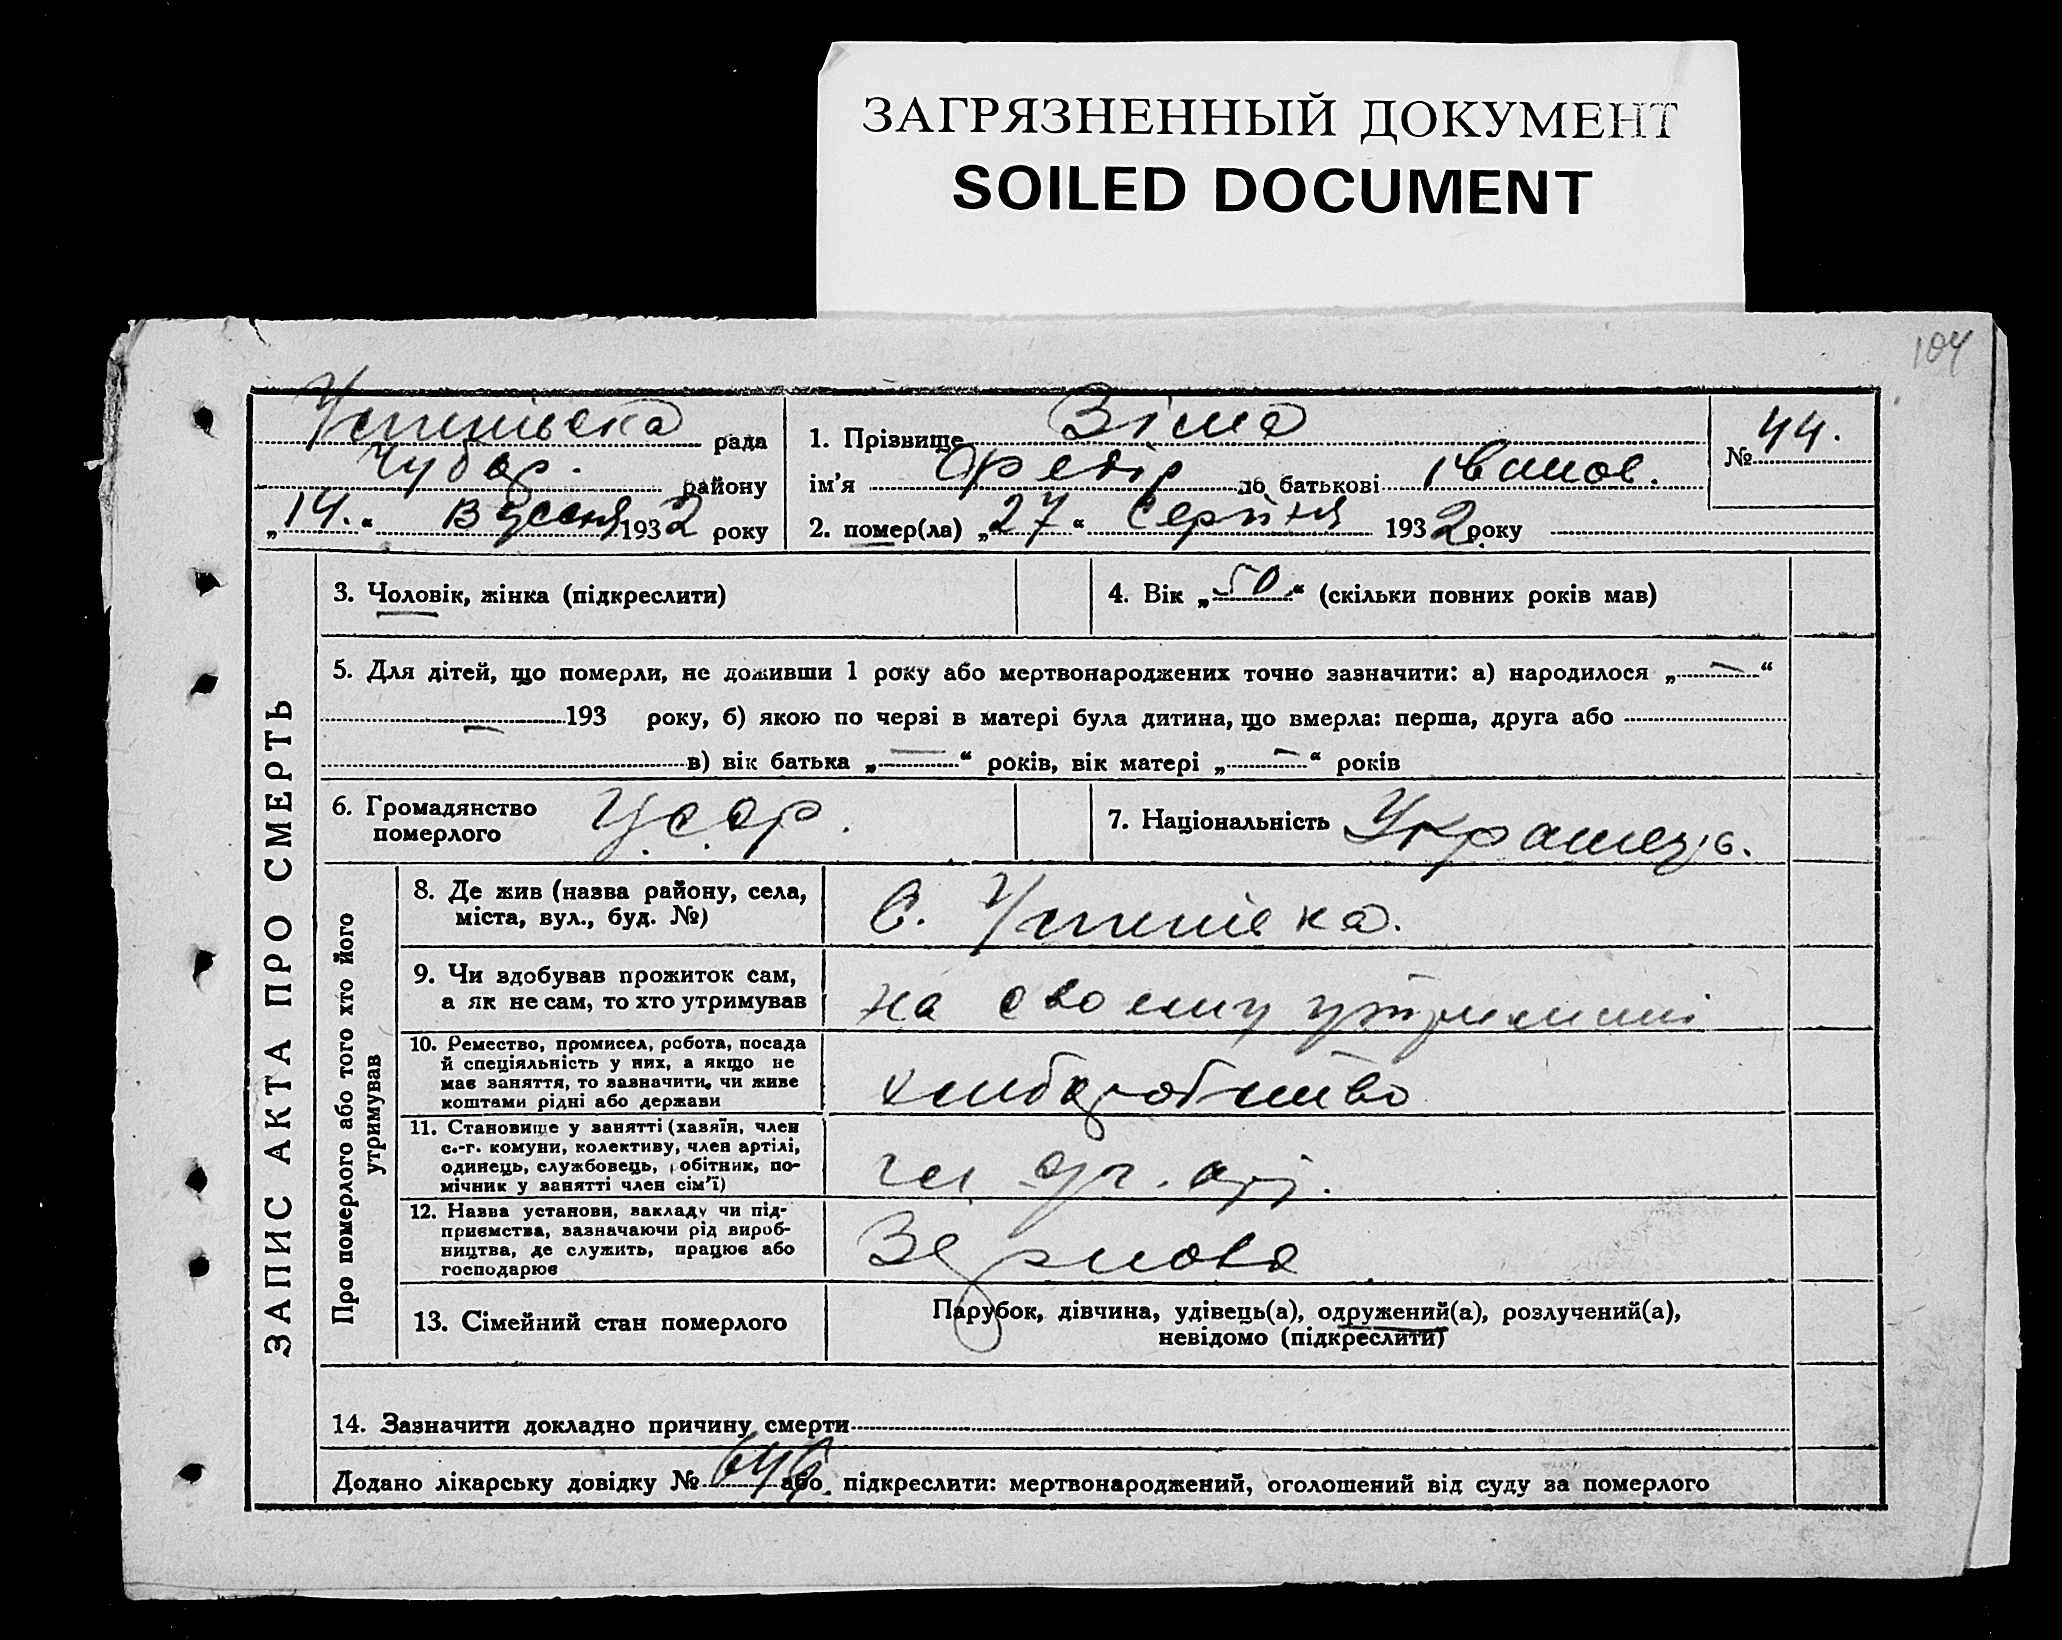 ЗАГРЯЗНЕННЫЙ ДОКУМЕНТ
SOILED DOCUMENT
104
Устинівська рада
Чубар. району
„14.“ Вресня 1932 року
1. Прізвище Зіма
ім'я Федір по батькові Іванов.
2. помер(ла) „27“ Серпня 1932 року
№ 44.
ЗАПИС АКТА ПРО СМЕРТЬ
3. Чоловік, жінка (підкреслити)
4. Вік „50“ (скільки повних років мав)
5. Для дітей, що померли, не доживши 1 року або мертвонароджених точно зазначити: а) народилося „—“
— 193 року, б) якою по черзі в матері була дитина, що вмерла: перша, друга або
в) вік батька „—“ років, вік матері „—“ років
6. Громадянство
померлого
У.С.С.р.
7. Національність
Про померлого або того хто його
утримував
8. Де жив (назва району, села,
міста, вул., буд. №)
С. Устинівка.
9. Чи здобував прожиток сам,
а як не сам, то хто утримував
на своєму утриманні
10. Ремество, промисел, робота, посада
й спеціяльність у них, а якщо не
має заняття, то зазначити, чи живе
коштами рідні або держави
хлибаробство
11. Становище у занятті (хазяїн, член
с.-г. комуни, колективу, член артілі,
одинець, службовець, робітник, по-
мічник у занятті член сім'ї)
чл
12. Назва установи, закладу чи під-
приємства, зазначаючи рід вироб-
ництва, де служить, працює або
господарює
Зернова
13. Сімейний стан померлого
Парубок, дівчина, удівець(а), одружений(а), розлучений(а),
невідомо (підкреслити)
14. Зазначити докладно причину смерти
Додано лікарську довідку № або підкреслити: мертвонароджений, оголошений від суду за померлого